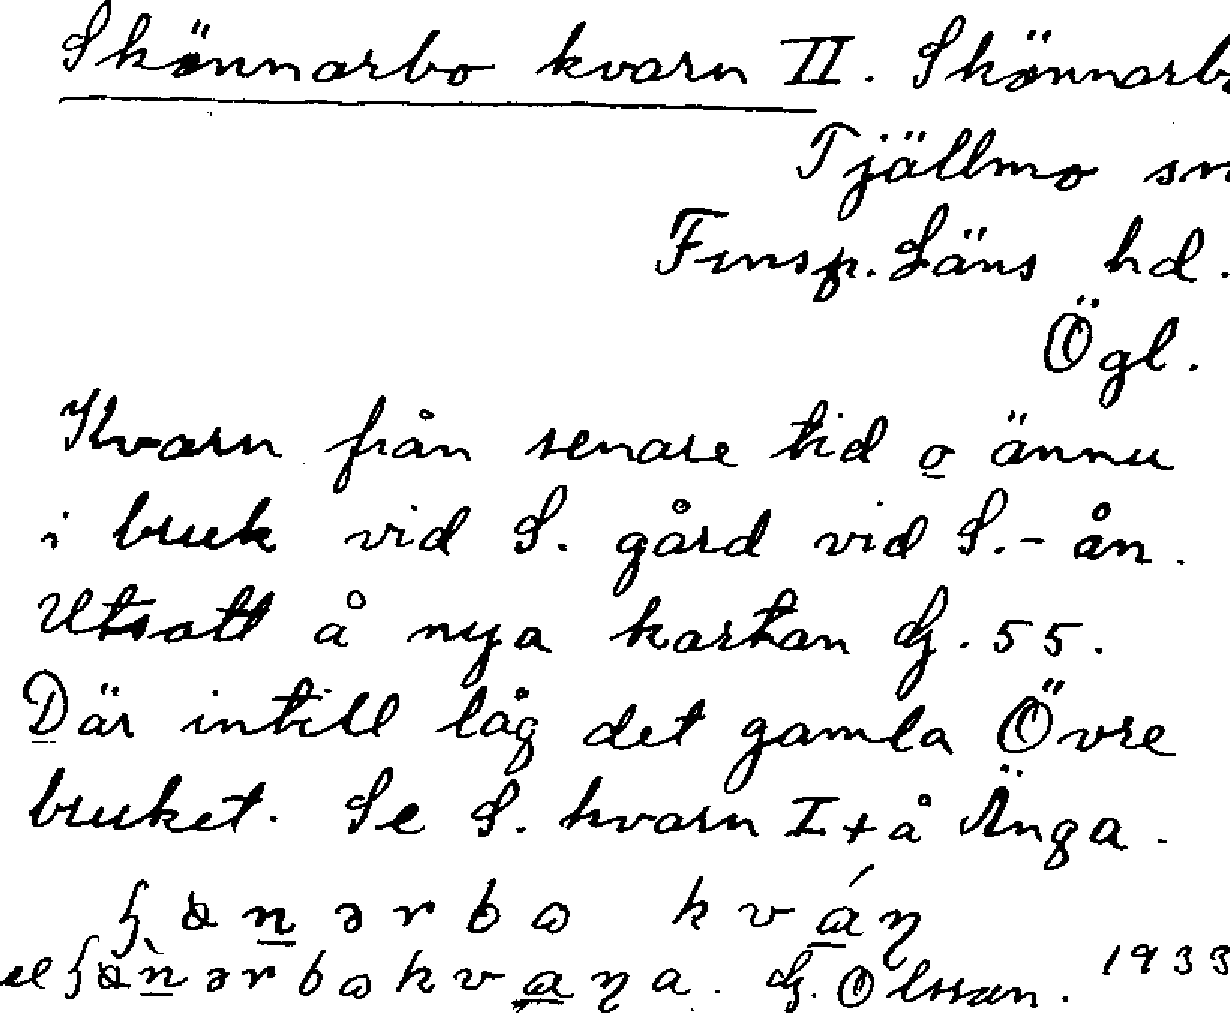 Skönnarbo kvarn II. Skönnarb
Tjällmo sn
Finsp. Läns hd.
Ögl.
Kvarn från senare tid o ännu
i bruk vid S. gård vid S.-ån.
Utsatt å nya kartan G. 55.
Där intill låg det gamla Övre
bruket. Se S. kvarn I + å Änga.
el
G. Olsson. 1933